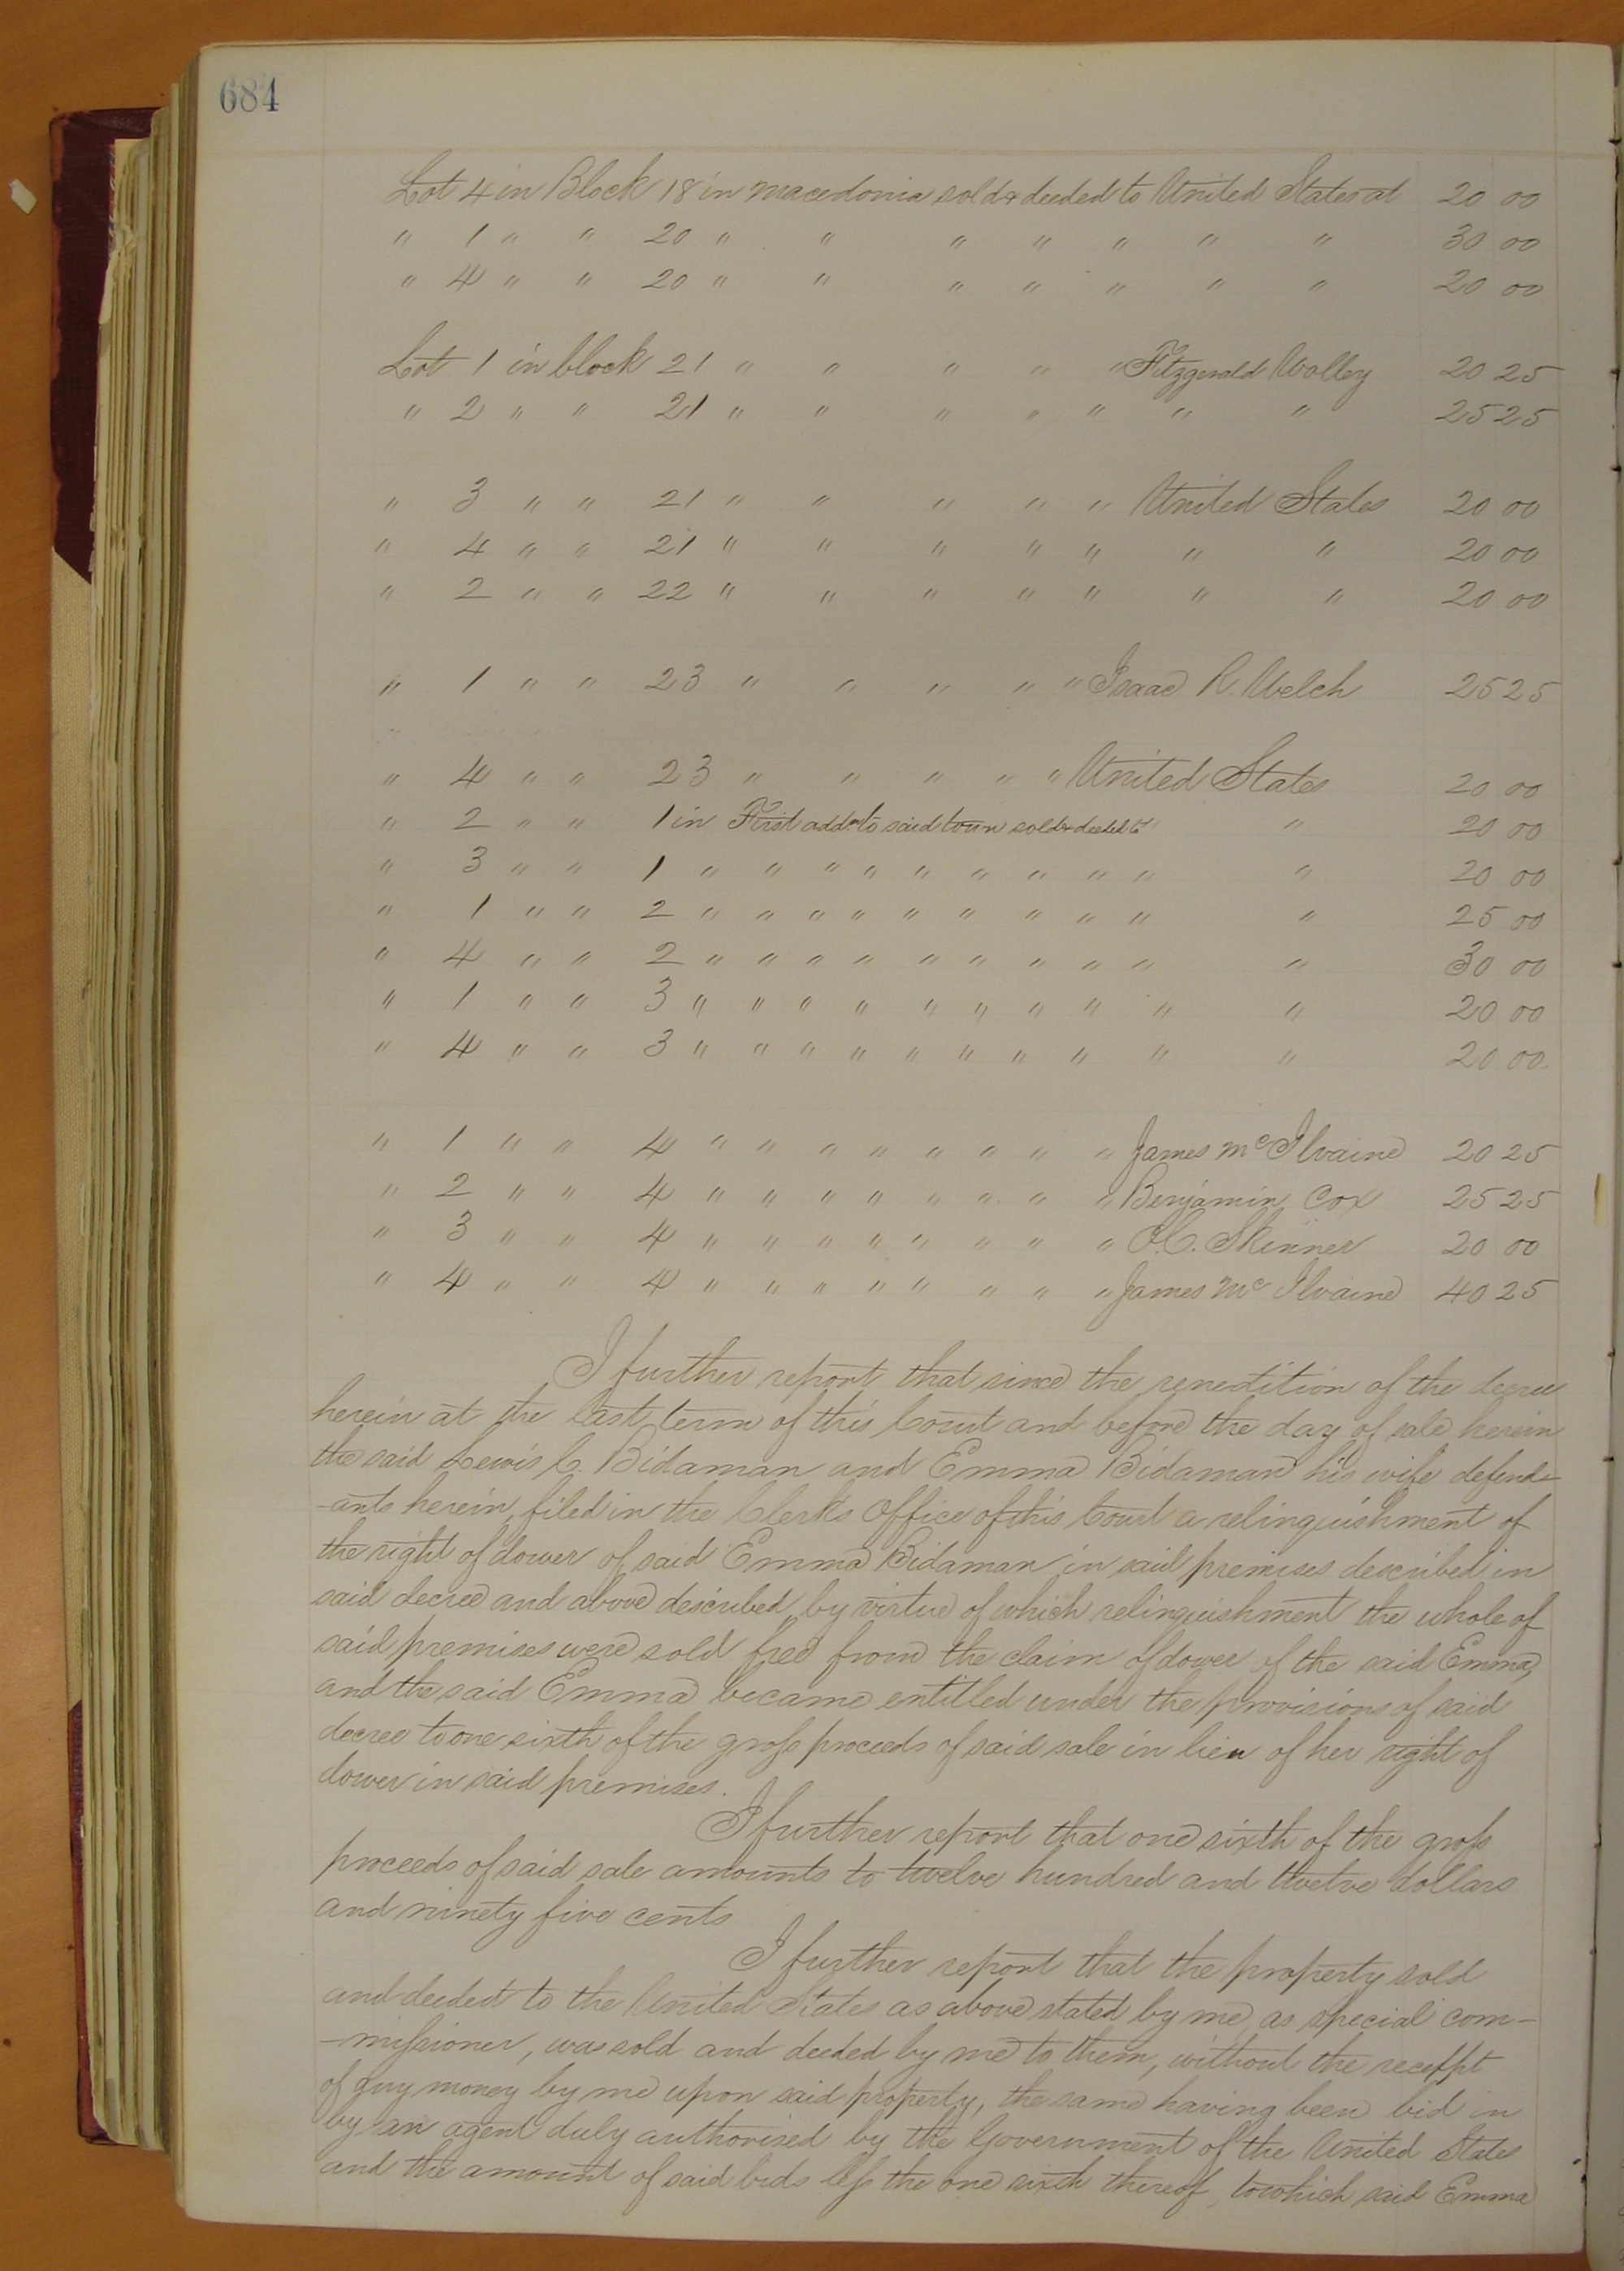 684
Lot 4 in Block 18 in Macedonia sold & deeded to United States at 20 00
" 1 " " 20 " " " " " " " 30 00
" 4 " " 20 " " " " " " " 20 00
Lot 1 in block 21 " " " " " Fitzgerald Wolley 20 25
" 2 " " 21 " " " " " " " 25 25
" 3 " " 21 " " " " " United States 20 00
" 4 " " 21 " " " " " " " 20 00
" 2 " " 22 " " " " " " " 20 00
" 1 " " 23 " " " " " Isaac R. Welch 25 25
" 4 " " 23 " " " " " United States 20 00
" 2 " " 1 in First addn to said town sold & deeded to " " 20 00
" 3 " " 1 " " " " " " " " " " 20 00
" 1 " " 2 " " " " " " " " " " 25 00
" 4 " " 2 " " " " " " " " " " 30 00
" 1 " " 3 " " " " " " " " " " 20 00
" 4 " " 3 " " " " " " " " " " 20 00
" 1 " " 4 " " " " " " " " James McIlvaine 20 25
" 2 " " 4 " " " " " " " " Benjamin Cox 25 25
" 3 " " 4 " " " " " " " " O.C. Skinner 20 00
" 4 " " 4 " " " " " " " " James McIlvaine 40 25
I further report that since the renedition of the decree
herein at the last term of this Court and before the day of sale herein
the said Lewis C. Bidaman and Emma Bidaman his wife defend-
-ants herein, filed in the Clerks Office of this Court a relinquishment of
the right of dower of said Emma Bidaman in said premises described in
said decree and above described, by virtue of which relinquishment the whole of
said premises were sold free from the claim of dower of the said Emma,
and the said Emma became entitled under the provisions of said
decree to one sixth of the gross proceeds of said sale in lieu of her right of
dower in said premises.
I further report that one sixth of the gross
proceeds of said sale amounts to twelve hundred and twelve dollars
and ninety five cents
I further report that the property sold
and deeded to the United States as above stated by me, as special com-
-missioner, was sold and deeded by me to them, without the receipt
of any money by me upon said property, the same having been bid in
by an agent duly authorised by the Government of the United States
and the amount of said bids less the one sixth thereof, to which said Emma